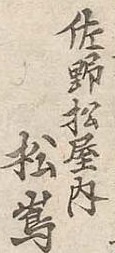 佐野松屋内
松嶌